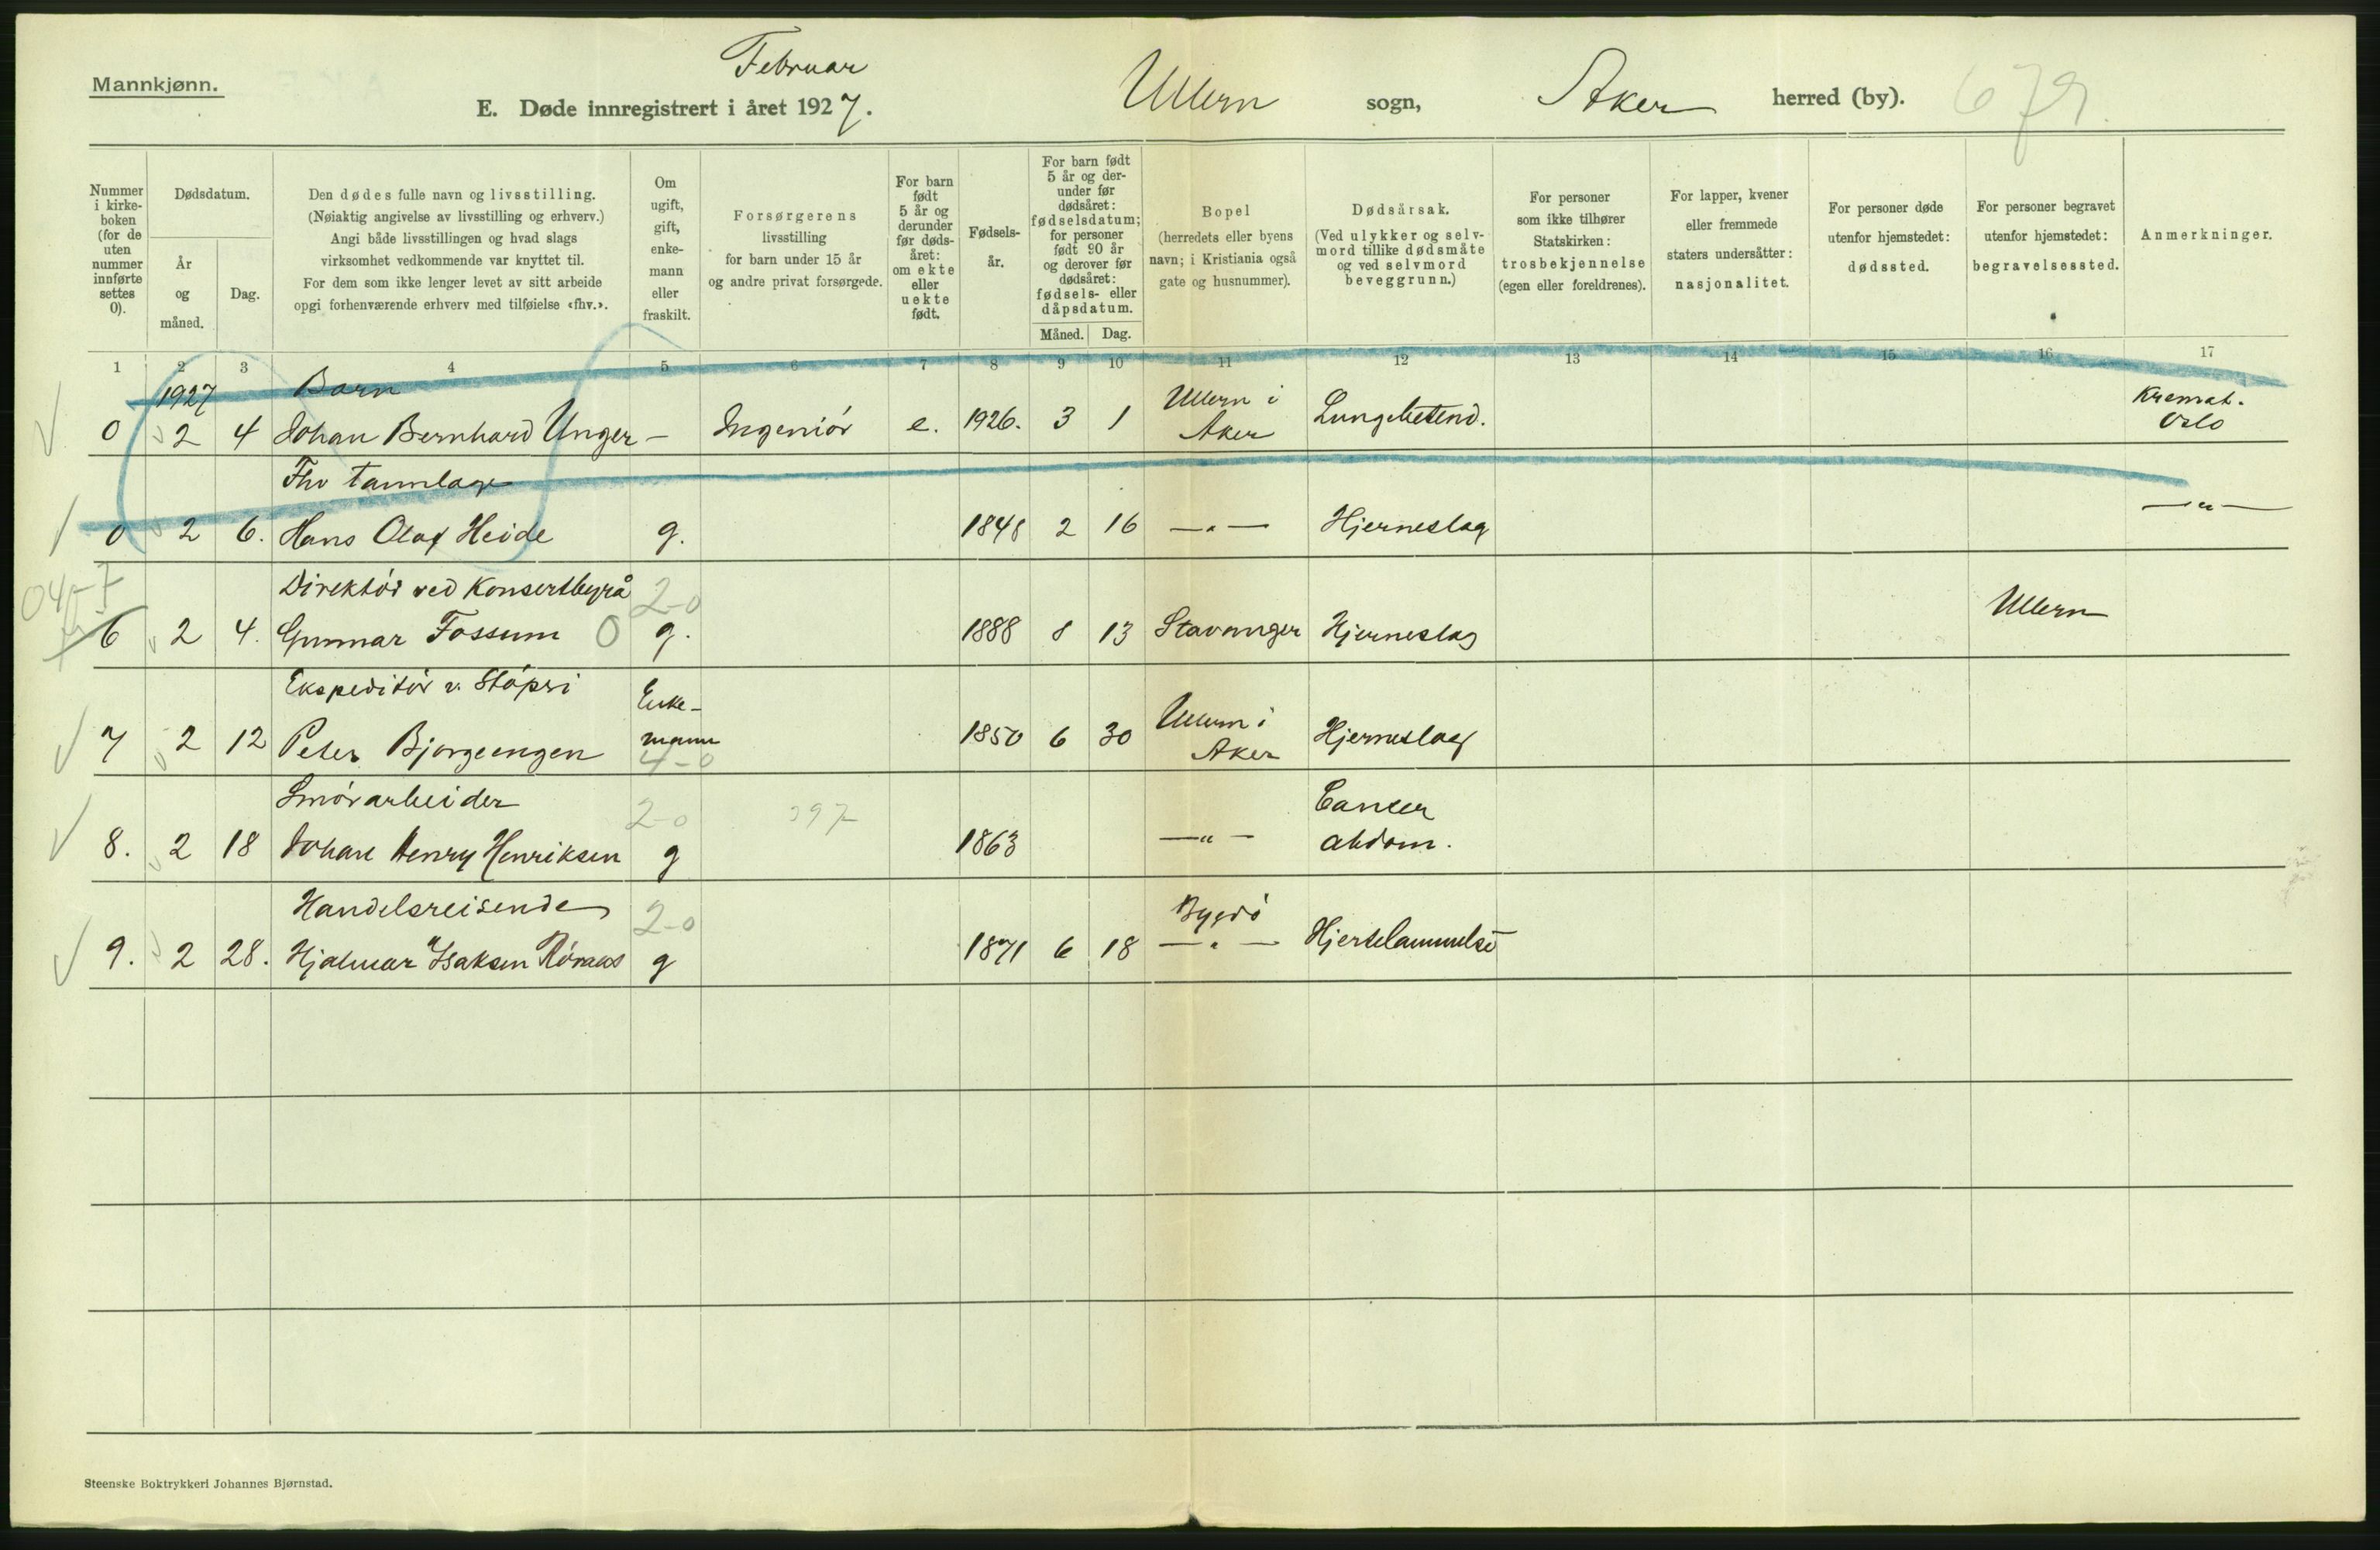 Mannkjønn.
Februar
E. Døde innregistrert i året 1927.
Ullern sogn, Aker herred (by).
679.
Nummer
i kirke-
boken
(for de
uten
nummer
innførte
settes
0).
Dødsdatum.
År
og
måned.
Dag.
Den dødes fulle navn og livsstilling.
(Nøiaktig angivelse av livsstilling og erhverv.)
Angi både livsstillingen og hvad slags
virksomhet vedkommende var knyttet til.
For dem som ikke lenger levet av sitt arbeide
opgi forhenværende erhverv med tilføielse «fhv.».
Om
ugift,
gift,
enke-
mann
eller
fraskilt.
Forsørgerens
livsstilling
for barn under 15 år
og andre privat forsørgede.
For barn
født
5 år og
derunder
før døds-
året:
om ekte
eller
uekte
født.
Fødsels-
år.
For barn født
5 år og der-
under før
dødsåret:
fødselsdatum;
for personer
født 90 år
og derover før
dødsåret:
fødsels- eller
dåpsdatum.
Måned. Dag.
Bopel
(herredets eller byens
navn; i Kristiania også
gate og husnummer).
Dødsårsak.
(Ved ulykker og selv-
mord tillike dødsmåte
og ved selvmord
beveggrunn.)
For personer
som ikke tilhører
Statskirken:
trosbekjennelse
(egen eller foreldrenes).
For lapper, kvener
eller fremmede
staters undersåtter:
nasjonalitet.
For personer døde
utenfor hjemstedet:
dødssted.
For personer begravet
utenfor hjemstedet:
begravelsessted.
Anmerkninger.
1 2 3 4 5 6 7 8 9 10 11 12 13 14 15 16 17
1927 Barn Ullern i Kremat.
0 2 4 Johan Bernhard Unger – Ingeniör e. 1926. 3 1 Aker Lungebetend. Oslo
Fhv tannlæge
0 2 6. Hans Olaf Heide g. 1848 2 16 —"— Hjerneslag —"—
Direktör ved Konsertbyrå 2-0 Ullern
6 2 4. Gunnar Fossum 0 g. 1888 8 13 Stavanger Hjerneslag
Ekspeditör v. Stöperi Enke- Ullern i
7 2 12 Peter Bjorgeengen mann 1850 6 30 Aker Hjerneslag
4-0
Smörarbeider 2-0 Cancer
8. 2 18 Johan Henry Henriksen g 1863 —"— abdom.
Handelsreisende 2-0 Bygdö
9. 2 28. Hjalmar Isaksen Röraas g 1871 6 18 —"— Hjertelammelse
Steenske Boktrykkeri Johannes Bjørnstad.